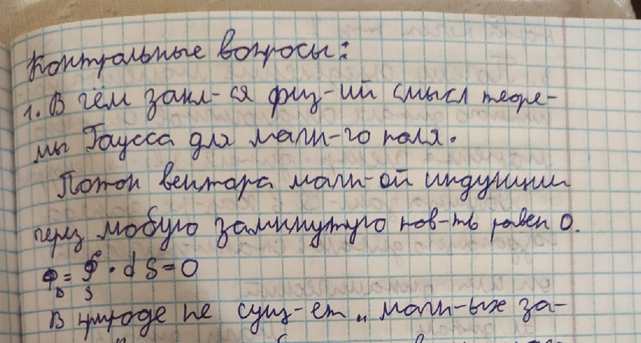 Контрольные вопросы:
1. В чём закл-ся физ-ий смысл теоре-
мы Гаусса для магн-го поля.
Поток вектора магн-ой индукции
через любую замкнутую пов-ть равен 0.
Ф_B = ∮_S · dS = 0
В природе не сущ-ет „магн-ых за-